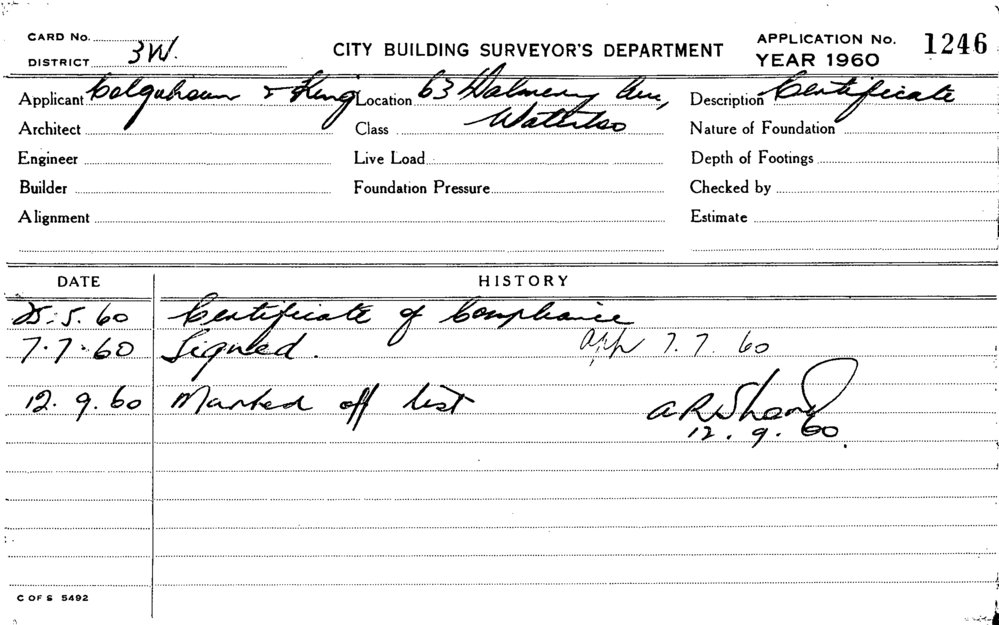 CARD No.
DISTRICT 3W.
CITY BUILDING SURVEYOR'S DEPARTMENT
APPLICATION No. 1246
YEAR 1960
Applicant Colquhoun & King Location 63 Dalmeny Ave, Description Certificate
Architect Class Waterloo Nature of Foundation
Engineer Live Load Depth of Footings
Builder Foundation Pressure Checked by
Alignment Estimate
DATE HISTORY
25.5.60 Certificate of Compliance
7.7.60 Signed. app 7.7.60
12.9.60 Marked off list
12.9.60.
C OF S 5492